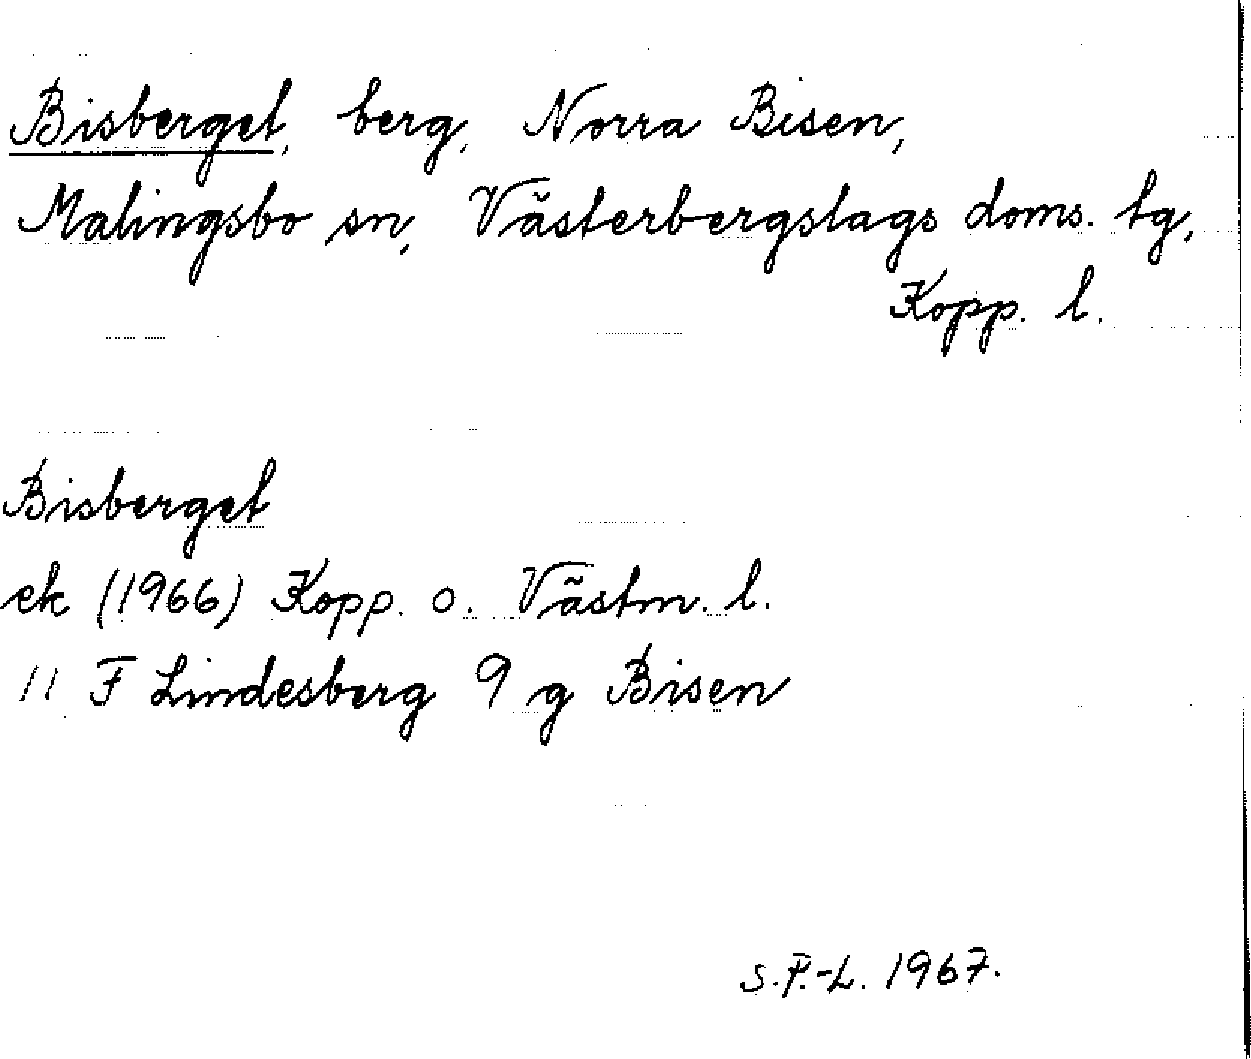 Bisberget, berg, Norra Bisen,
Malingsbo sn, Västerbergslags doms. tg,
Kopp. l.
Bisberget
ek (1966) Kopp. o. Västm. l.
11 F Lindesberg 9 g Bisen
S.P.-L. 1967.